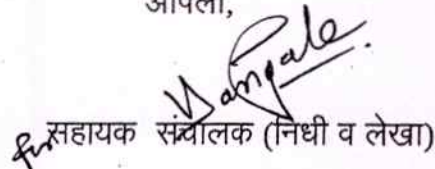 आपला,
for सहायक संचालक (निधी व लेखा)